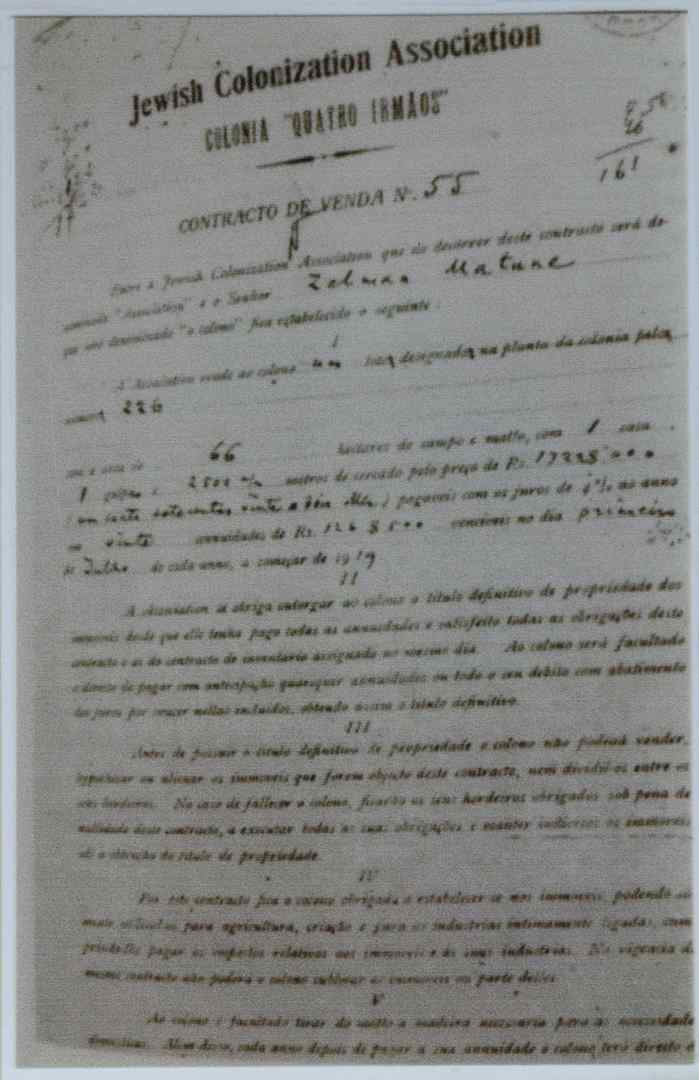 Jewish Colonization Association
COLONIA "QUATRO IRMÃOS"
56
26
161
CONTRACTO DE VENDA Nº. 55
Entre a Jewish Colonization Association que no decorrer deste contracto será de-
nominada "Association" e o Senhor Zelman Matune
que será denominado "o colono" fica estabelecido o seguinte:
I
A Association vende ao colono um lote designado na planta da colonia pelo
numero 226
com a area de 66 hectares de campo e matto, com 1 casa
1 galpão e 2500 metros de cercado pelo preço de Rs.
pagaveis com os juros de 4% ao anno
em vinte annuidades de Rs. 126$500 venciveis no dia primeiro
de Julho de cada anno, a começar de 1919
II
A Association se obriga outorgar ao colono o titulo definitivo de propriedade dos
immoveis desde que elle tenha pago todas as annuidades e satisfeito todas as obrigações deste
contracto e as do contracto de inventario assignado no mesmo dia. Ao colono será facultado
o direito de pagar com antecipação quaesquer annuidades ou todo o seu debito com abatimento
dos juros por vencer nellas incluidos, obtendo assim o titulo definitivo.
III
Antes de possuir o titulo definitivo de propriedade o colono não poderá vender,
hypothecar ou alienar os immoveis que forem objecto deste contracto, nem dividil-os entre os
seus herdeiros. No caso de fallecer o colono, ficarão os seus herdeiros obrigados sob pena de
nullidade deste contracto, a executar todas as suas obrigações e manter indivisos os immoveis
até a obtenção do titulo de propriedade.
IV
Por este contracto fica o colono obrigado a estabelecer-se nos immoveis, podendo so-
mente utilisal-os para agricultura, criação e para as industrias intimamente ligadas, cum-
prindo-lhe pagar os impostos relativos aos immoveis e ás suas industrias. Na vigencia d
mesmo contracto não poderá o colono sublocar os immoveis ou parte delles.
V
Ao colono é facultado tirar do matto a madeira necessaria para as necessidade
domesticas. Alem disso, cada anno depois de pagar a sua annuidade o colono terá direito a